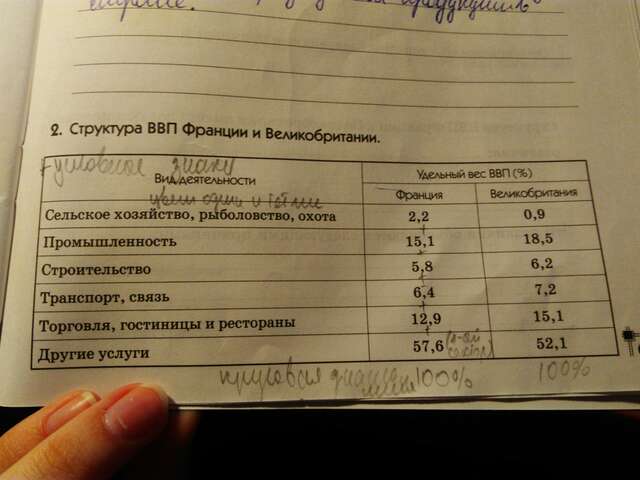 продукции
2. Структура ВВП Франции и Великобритании.
+условные знаки
Вид деятельности
Удельный вес ВВП (%)
цвет одни и те же
Франция
Великобритания
Сельское хозяйство, рыболовство, охота 2,2 0,9
Промышленность 15,1 18,5
Строительство 5,8 6,2
Транспорт, связь 6,4 7,2
Торговля, гостиницы и рестораны 12,9 15,1
Другие услуги 57,6 52,1
круговая диаграмма 100% 100%